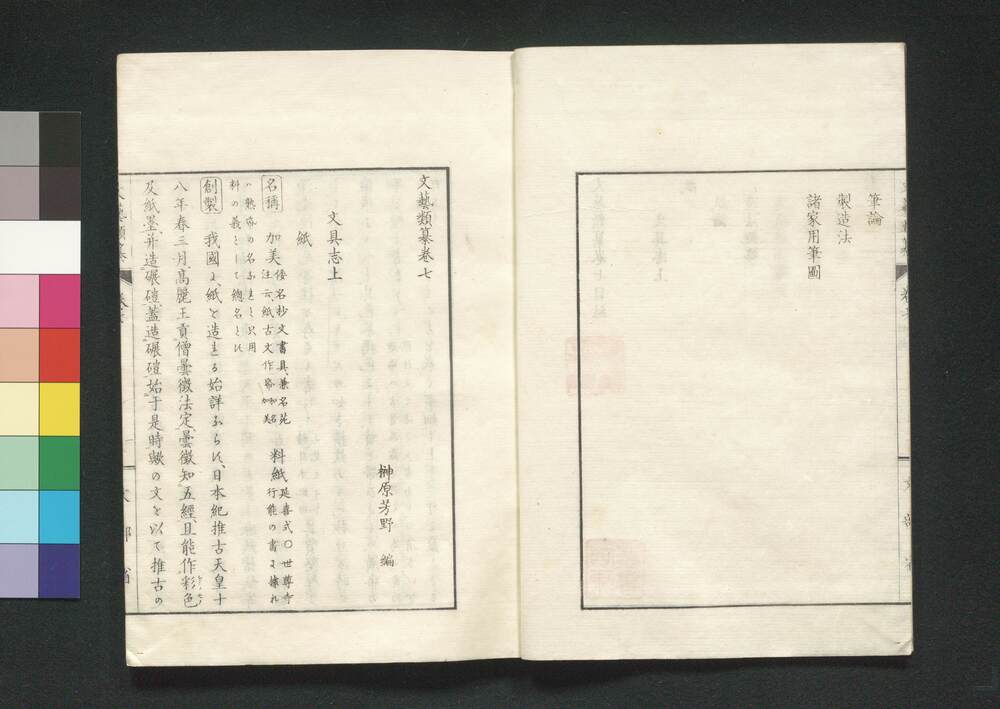 筆論
製造法
諸家用筆圖
文藝類纂卷七
榊原芳野 編
文具志上
紙
名稱 加美 倭名抄文書具、兼名苑注云、紙古文作帋和名加美 料紙 延喜式〇世尊寺行能の書に據れ
ハ熟帋の名なれとい用料の義として總名とい
創製 我國に紙を造れる始詳ならに、日本紀推古天皇十
八年春三月高麗王貢僧曇徵法定、曇徵知五經、且能作彩色
及紙墨、并造碾磑、蓋造碾磑、始于是時歟の文を以て推古の
文部省